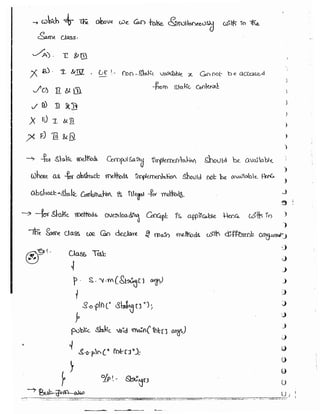 → which of the above we can take Simultaneously with in the
Same class.
✓A) . I & III
X B) . I & IV . CE :- non-static variable x can not be accessed
from static context
✓C) II & III
✓ D) II & IV
X E) I & II
X F) III & IV
→ for static methods Compulsory implementation should be available
where as for abstract methods implementation should not be available. Hence
abstract-static combination is illegal for methods.
→ for static methods overloading Concept is applicable. Hence with in
the Same class we can declare 2 main methods with different arguments
eg:- class Test
{
P. S. v. m(String[] args)
{
S.o.pln("String[]");
}
public static void main(int[] args)
{
S.o.pln("int[]");
}
}
O/p :- String[]
→ But